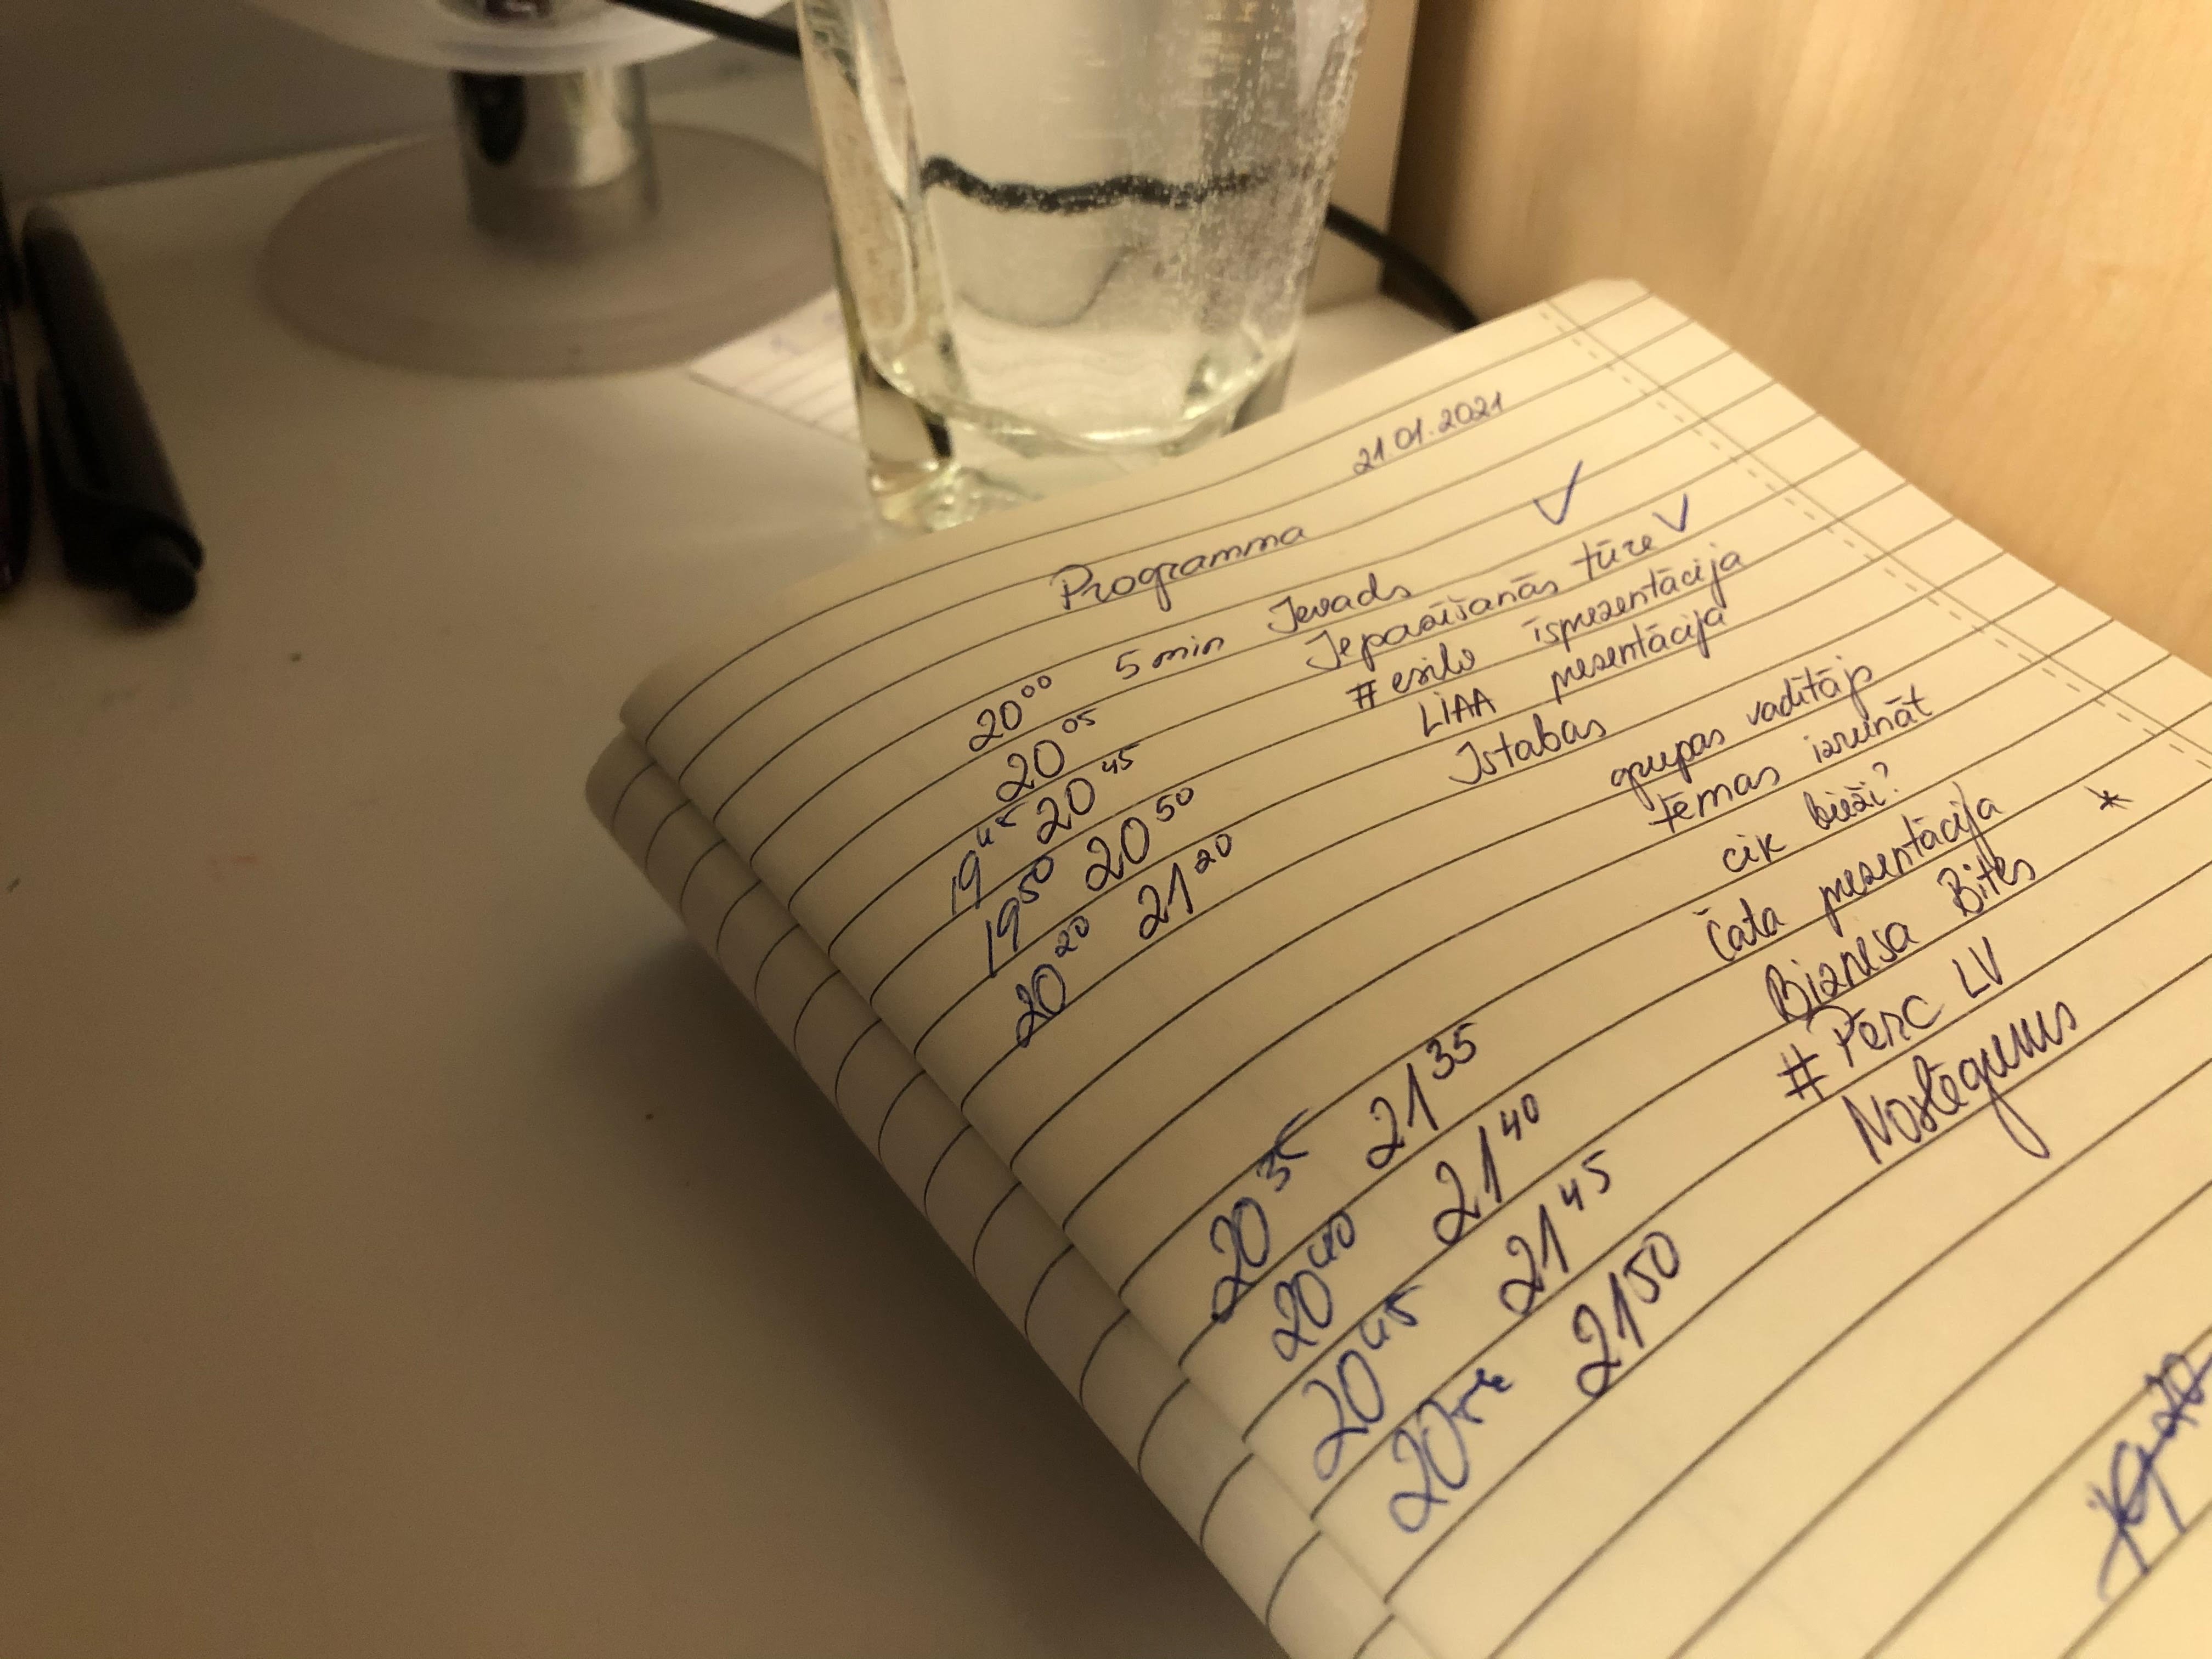 21.01.2021
Programma
20 00 5 min Ievads ✓
20 05 Iepazīšanās tūre ✓
19 45 20 45 # esilv īsprezentācija
19 50 20 50 LIAA prezentācija
20 20 21 20 Istabas
grupas vadītājs
tēmas izrunāt
cik bieži?
20 35 21 35 čata prezentācija
20 40 21 40 Biznesa Bites *
20 45 21 45 # Pērc LV
20 21 50 Noslēgums